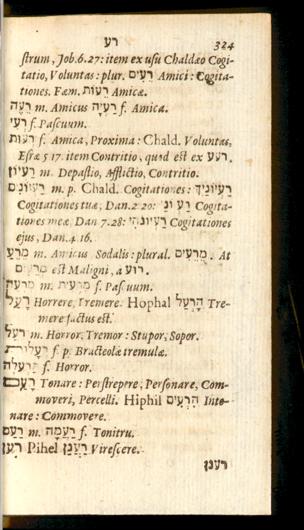 רע 324
strum, Job.6.27: item ex usu Chaldæo Cogi-
tatio, Voluntas: plur. רֵעִים Amici: Cogita-
tiones. Fæm. רֵעוֹת Amicæ.
רֵעֶה m. Amicus רַעְיָה f. Amica.
רְעִי f. Pascuum.
רְעוּת f. Amica, Proxima: Chald. Voluntas,
Esræ 5 17. item Contritio, quod est ex רעע.
רַעְיוֹן m. Depastio, Afflictio, Contritio.
m. p. Chald. Cogitationes: רַעְיוֹנֵיךְ
Cogitationes tuæ, Dan. 2 20: Cogita-
tiones meæ Dan 7.28: Cogitationes
ejus, Dan. 4 16.
מֵרֵעַ m. Amicus Sodalis: plural. מְרֵעִים. At
מְרֵעִים est Maligni, a רוע.
m. מַרְעִית f. Pascuum.
רָעַל Horrere, Tremere. Hophal הָרְעַל Tre-
mere factus est.
רַעַל m. Horror, Tremor: Stupor, Sopor.
רְעָלוֹת f. p. Bracteolæ tremulæ.
תַּרְעֵלָה f. Horror.
רָעַם Tonare: Perstrepere, Personare, Com-
moveri, Percelli. Hiphil הִרְעִים Into-
nare: Commovere.
רַעַם m. רַעְמָה f. Tonitru.
רָעַן Pihel רַעֲנַן Virescere.
רענן